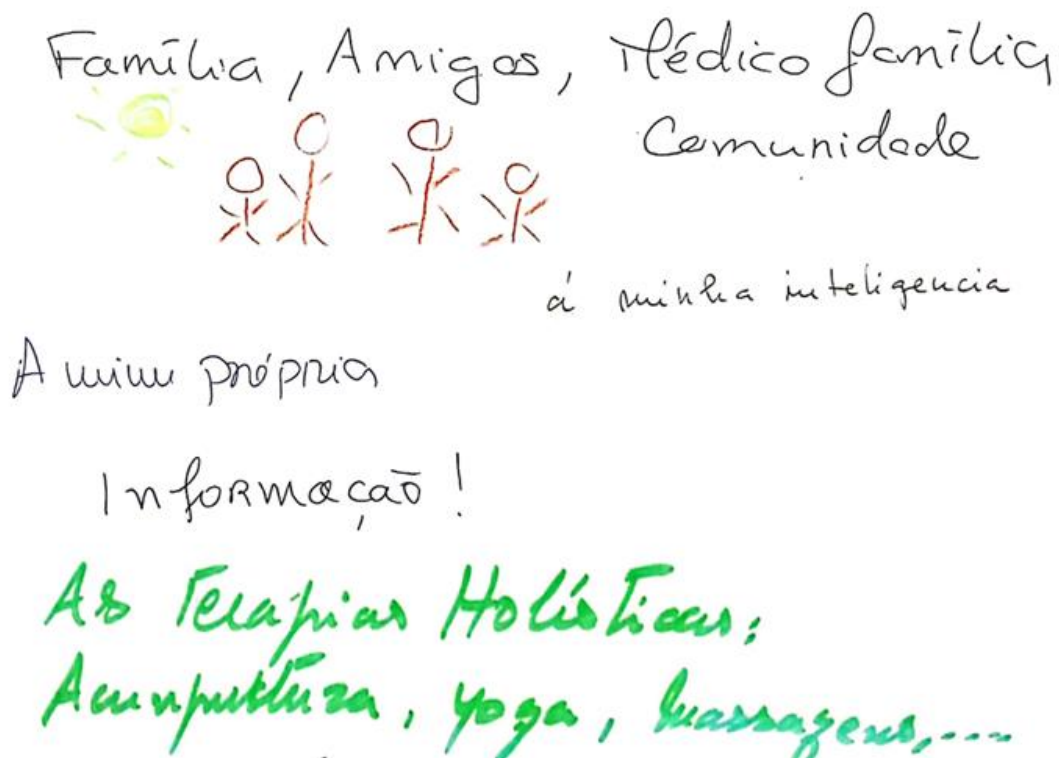 Família, Amigos, Médico família
Comunidade
á minha inteligencia
A mim própria
Informação!
As Terapias Holísticas:
Acunpuktura, yoga, massagens,....